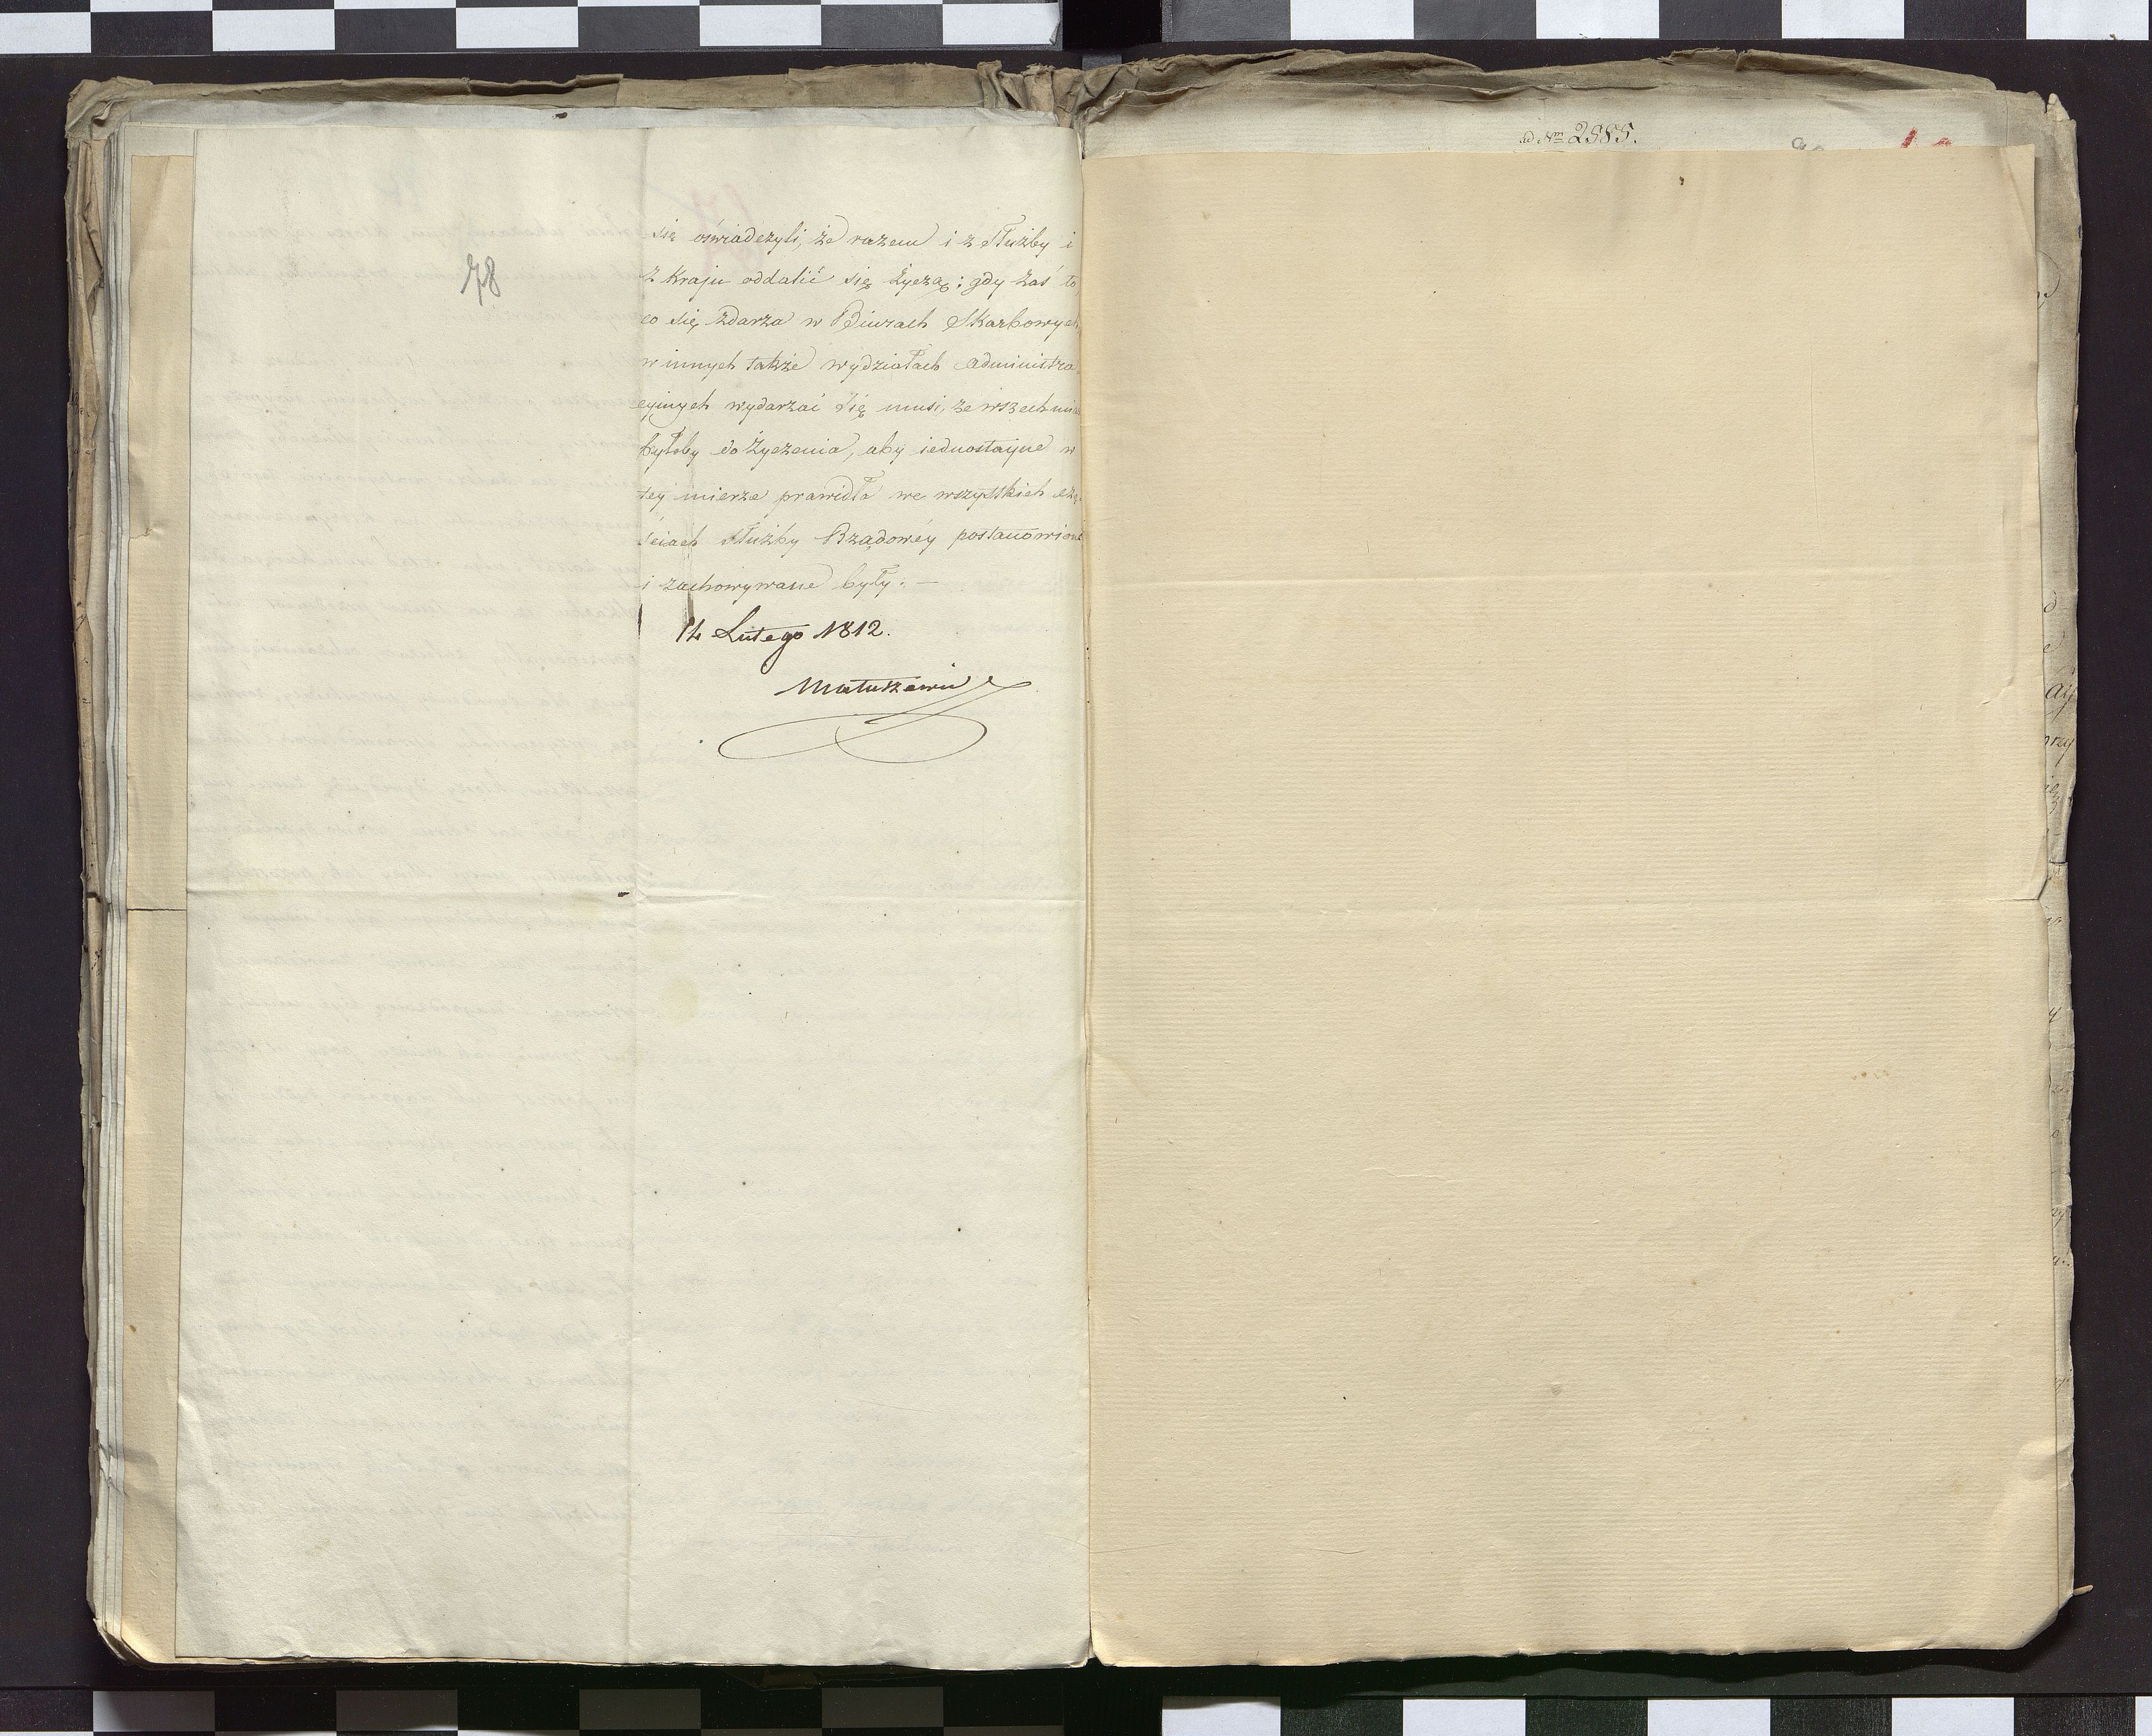 78
się oświadczyli, że razem i z Służby i
z Kraju oddalić się życzą; gdy zaś to,
co się zdarza w Biurach Skarbowych,
w innych także wydziałach Administra-
cyinych wydarzać się musi, ze wszech miar
byłoby do życzenia, aby iednostayne w
tey mierze prawidła we wszystkich czę-
ściach Służby Rządowéy postanowione
i zachowywane były. —
14 Lutego 1812.
Matuszewic
ad Nrm 2585.